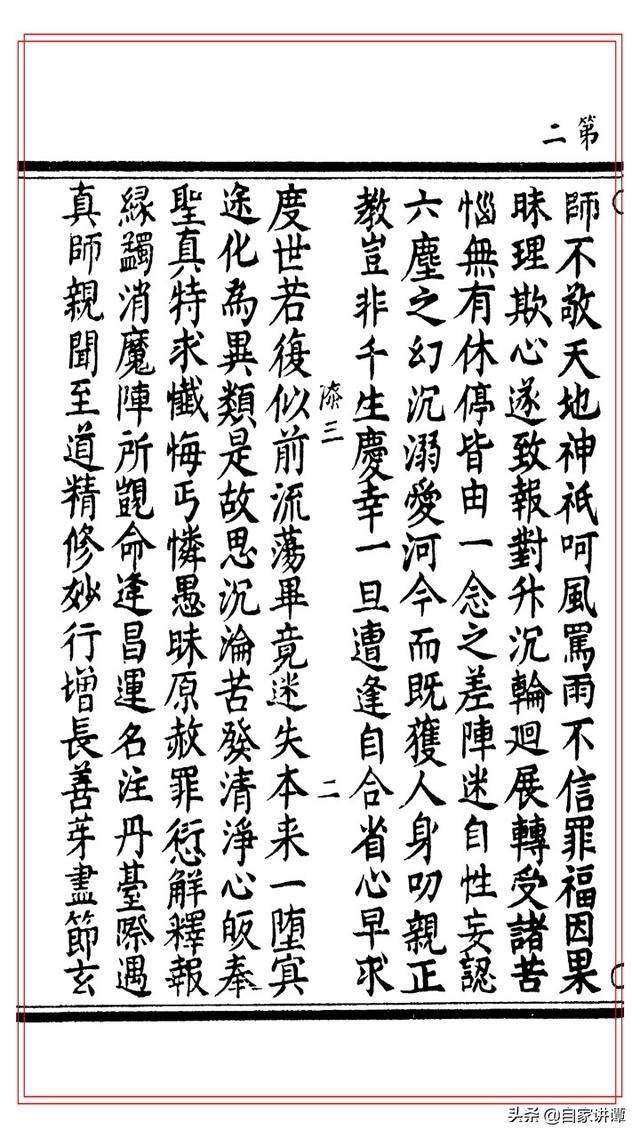 第二
師不敬天地神祇呵風罵雨不信罪福因果
昧理欺心遂致報對升沉輪迴展轉受諸苦
惱無有休停皆由一念之差陣迷自性妄認
六塵之幻沉溺愛河今而既獲人身叨親正
教豈非千生慶幸一旦遭逢自合省心早求
漆三 二
度世若復似前流蕩畢竟迷失本来一堕㝠
途化為異類是故思沉淪苦發清淨心皈奉
聖真特求懺悔丐憐愚昧原赦罪愆解釋報
緣蠲消魔陣所覬命逢昌運名注丹䑓際遇
真師親聞至道精修妙行增長善芽盡節玄
头条 @自家讲谭